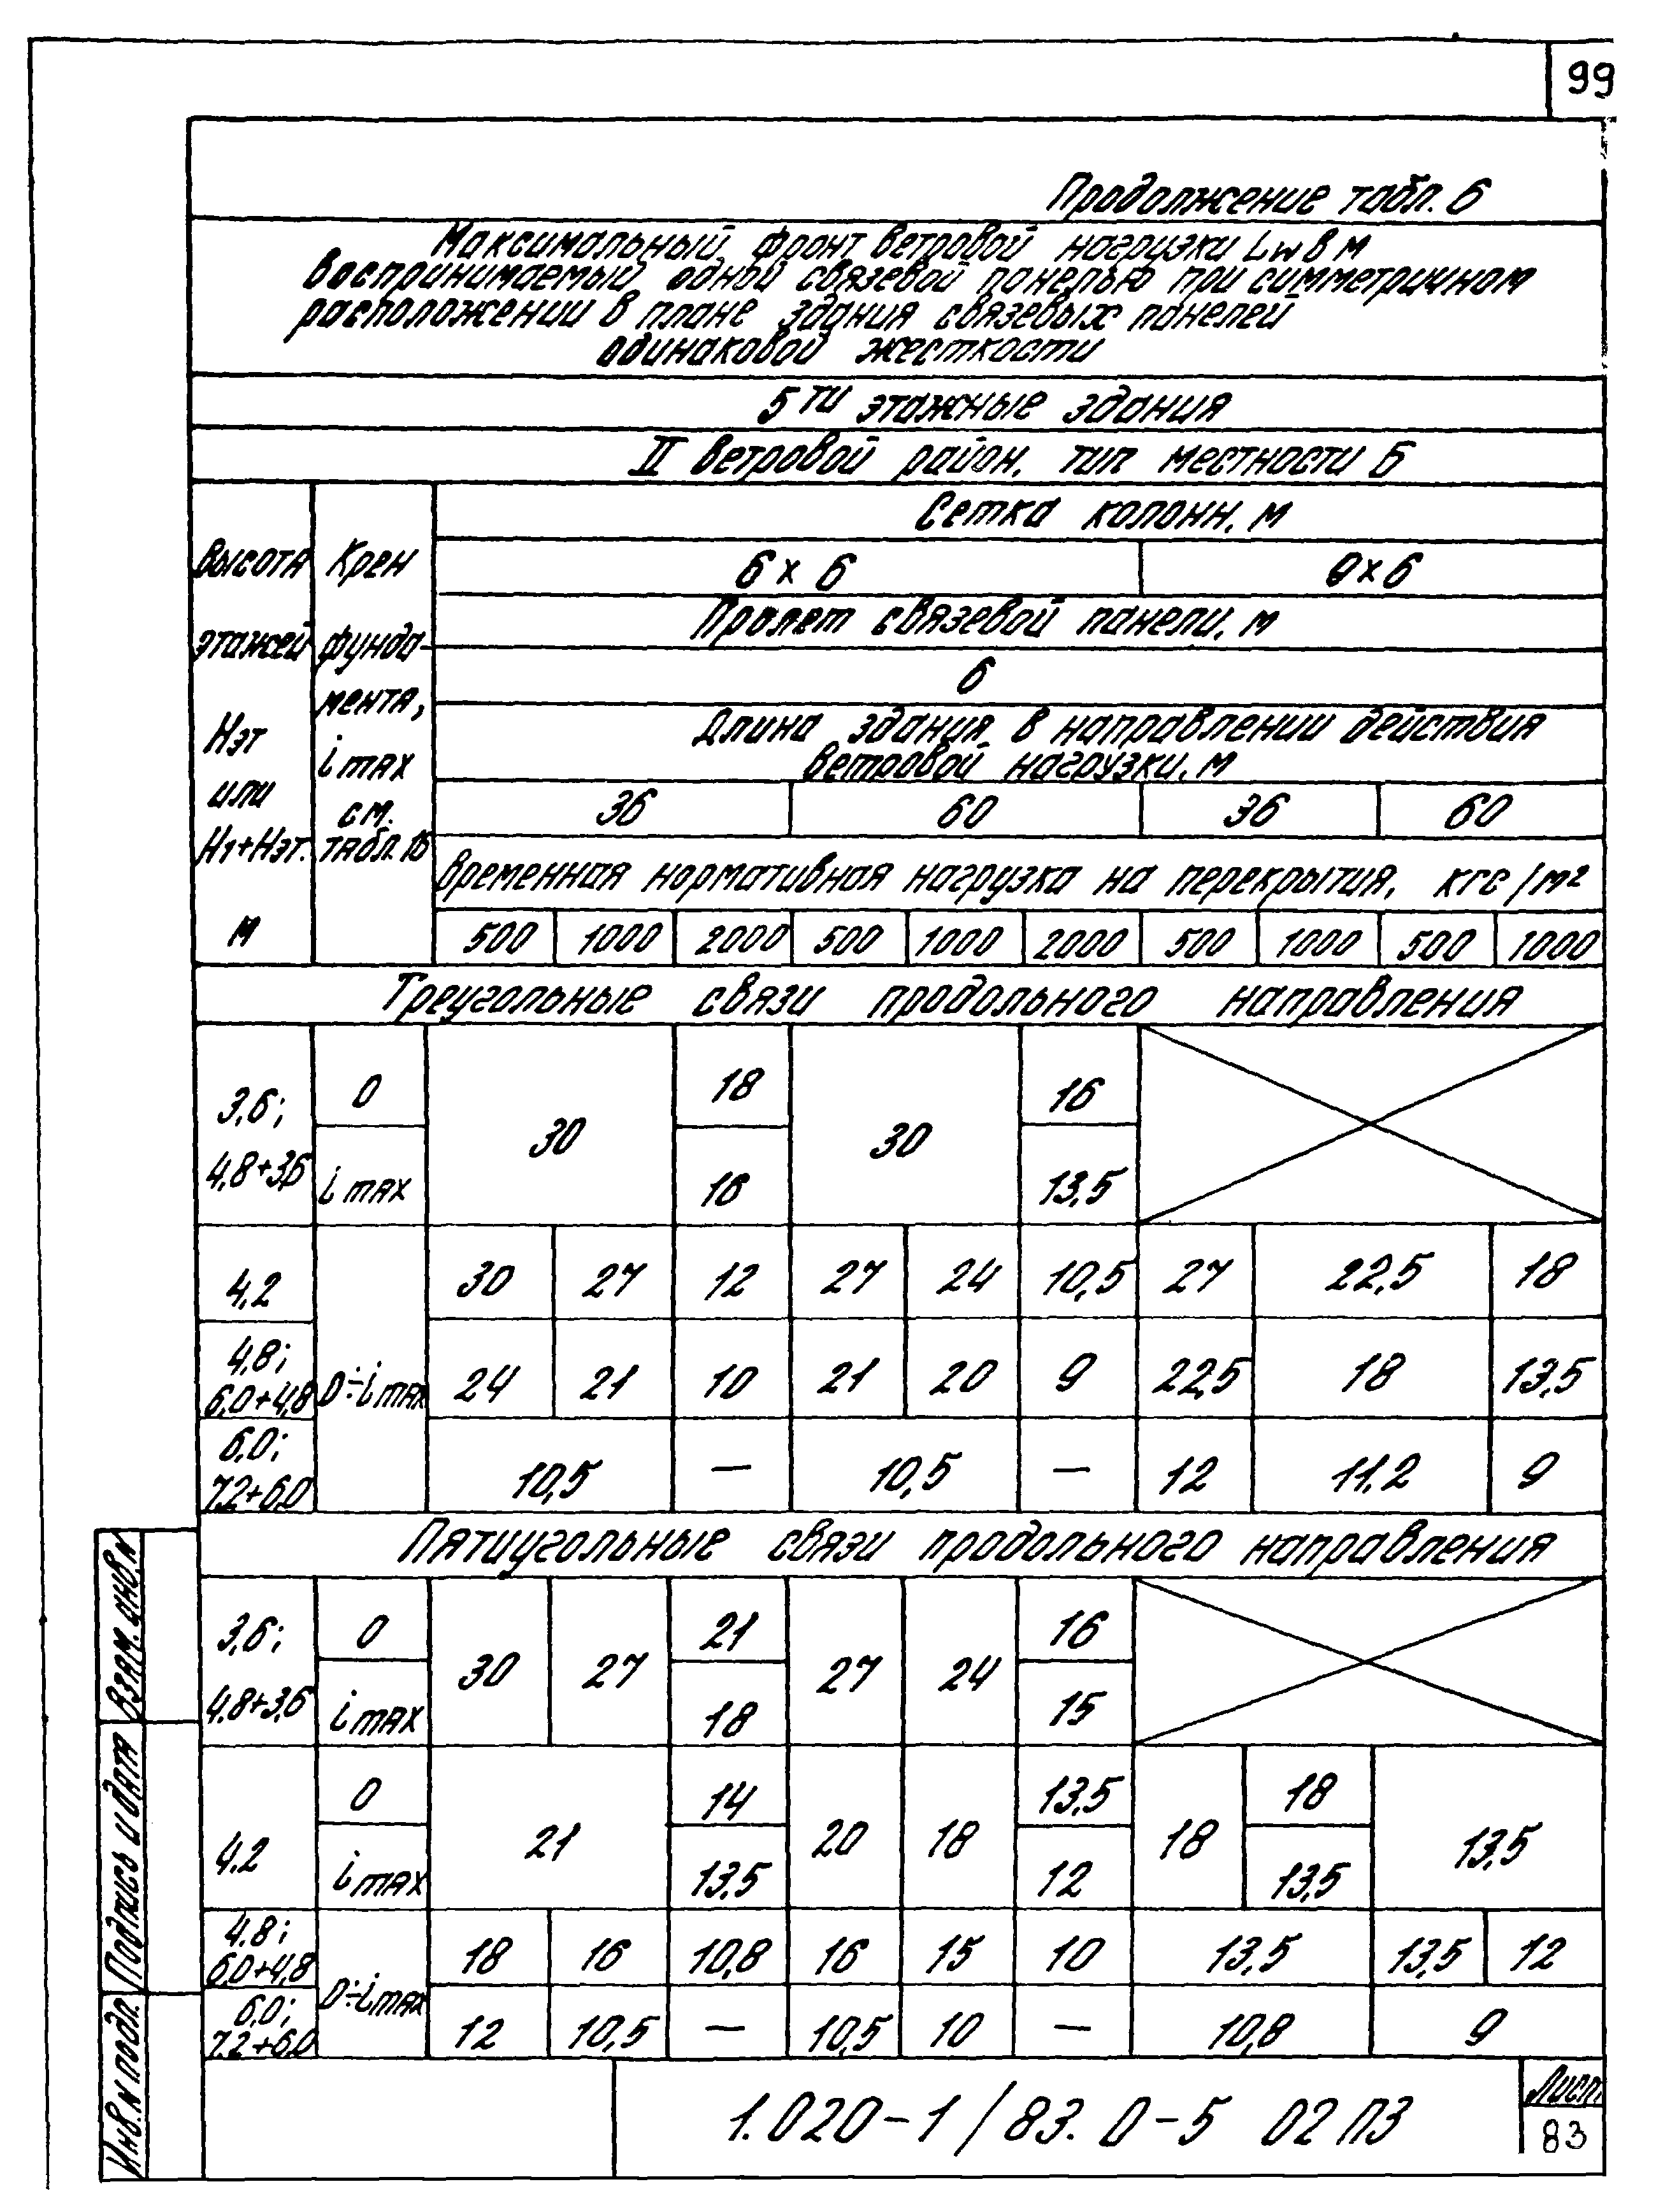 99
Продолжение табл. 6
Максимальный фронт ветровой нагрузки Lw в м
воспринимаемый одной связевой панелью при симметричном
расположении в плане здания связевых панелей
одинаковой жесткости
5ти этажные здания
II ветровой район, тип местности Б
Высота этажей Нэт или Н1+Нэт. м
Крен фунда-мента, i max см. табл. 16
Сетка колонн, м
6 х 6 9х6
Пролет связевой панели, м
6
Длина здания в направлении действия
ветровой нагрузки, м
36 60 36 60
временная нормативная нагрузка на перекрытия, кгс/м²
500 1000 2000 500 1000 2000 500 1000 500 1000
Треугольные связи продольного направления
3,6; 0 30 18 30 16
4,8+3,6 i max 16 13,5
4,2 30 27 12 27 24 10,5 27 22,5 18
4,8;
6,0+4,8 0÷i max 24 21 10 21 20 9 22,5 18 13,5
6,0;
7,2+6,0 10,5 — 10,5 — 12 11,2 9
Пятиугольные связи продольного направления
3,6; 0 30 27 21 27 24 16
4,8+3,6 i max 18 15
4,2 0 21 14 20 18 13,5 18 18 13,5
i max 13,5 12 13,5
4,8;
6,0+4,8 0÷i max 18 16 10,8 16 15 10 13,5 13,5 12
6,0;
7,2+6,0 12 10,5 — 10,5 10 — 10,8 9
Взам. инв. N
Подпись и дата
Инв. N подл.
1.020-1/83. 0-5 02 ПЗ
Лист
83